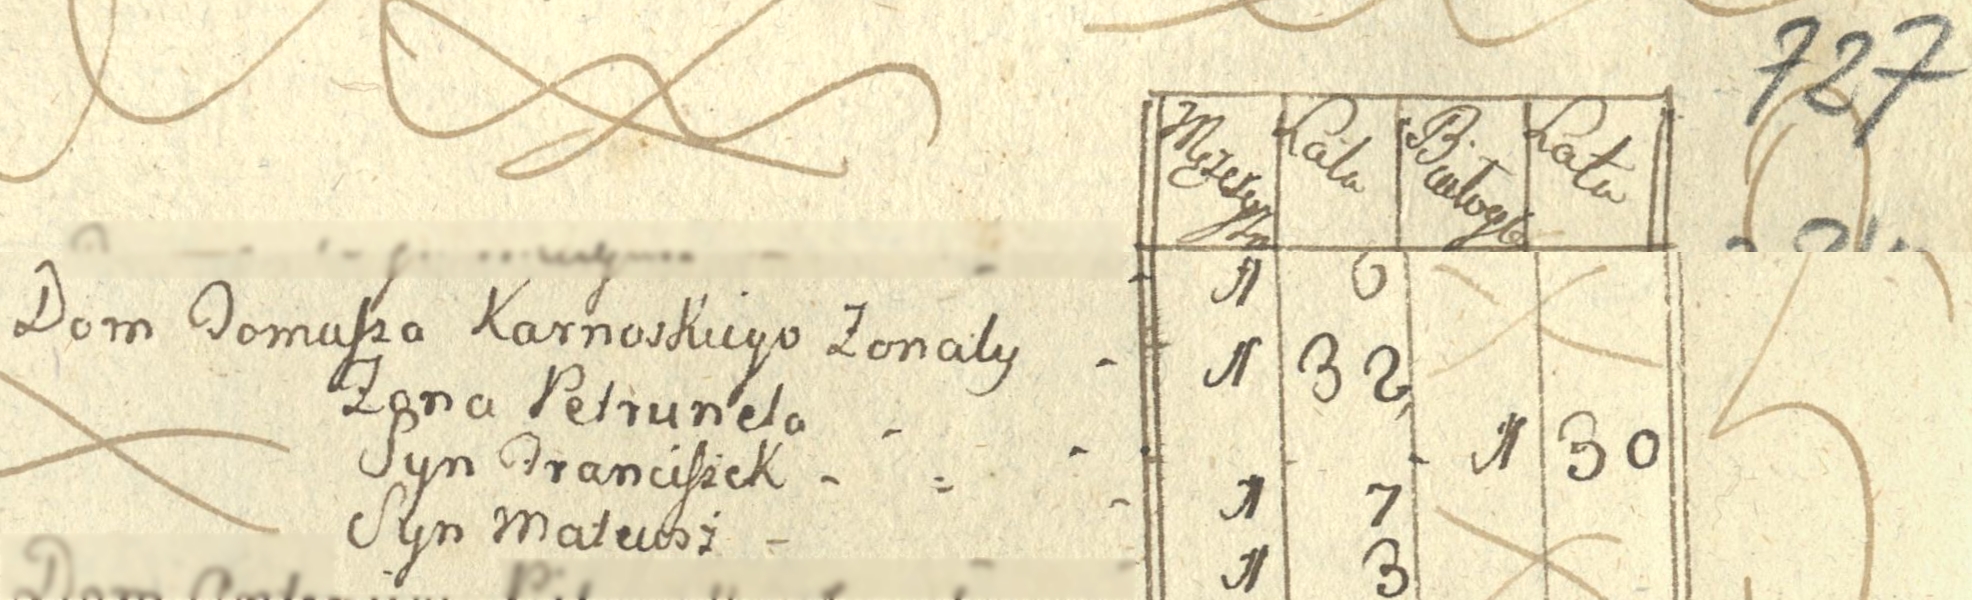 727
Mężczyzn Lata Białogł Lata
1 6
Dom Tomaſza Karnoskiego Żonaty - 1 32
Żona Petrunela - 1 30
Syn Franciſzek - 1 7
Syn Mateusz - 1 3
Dom